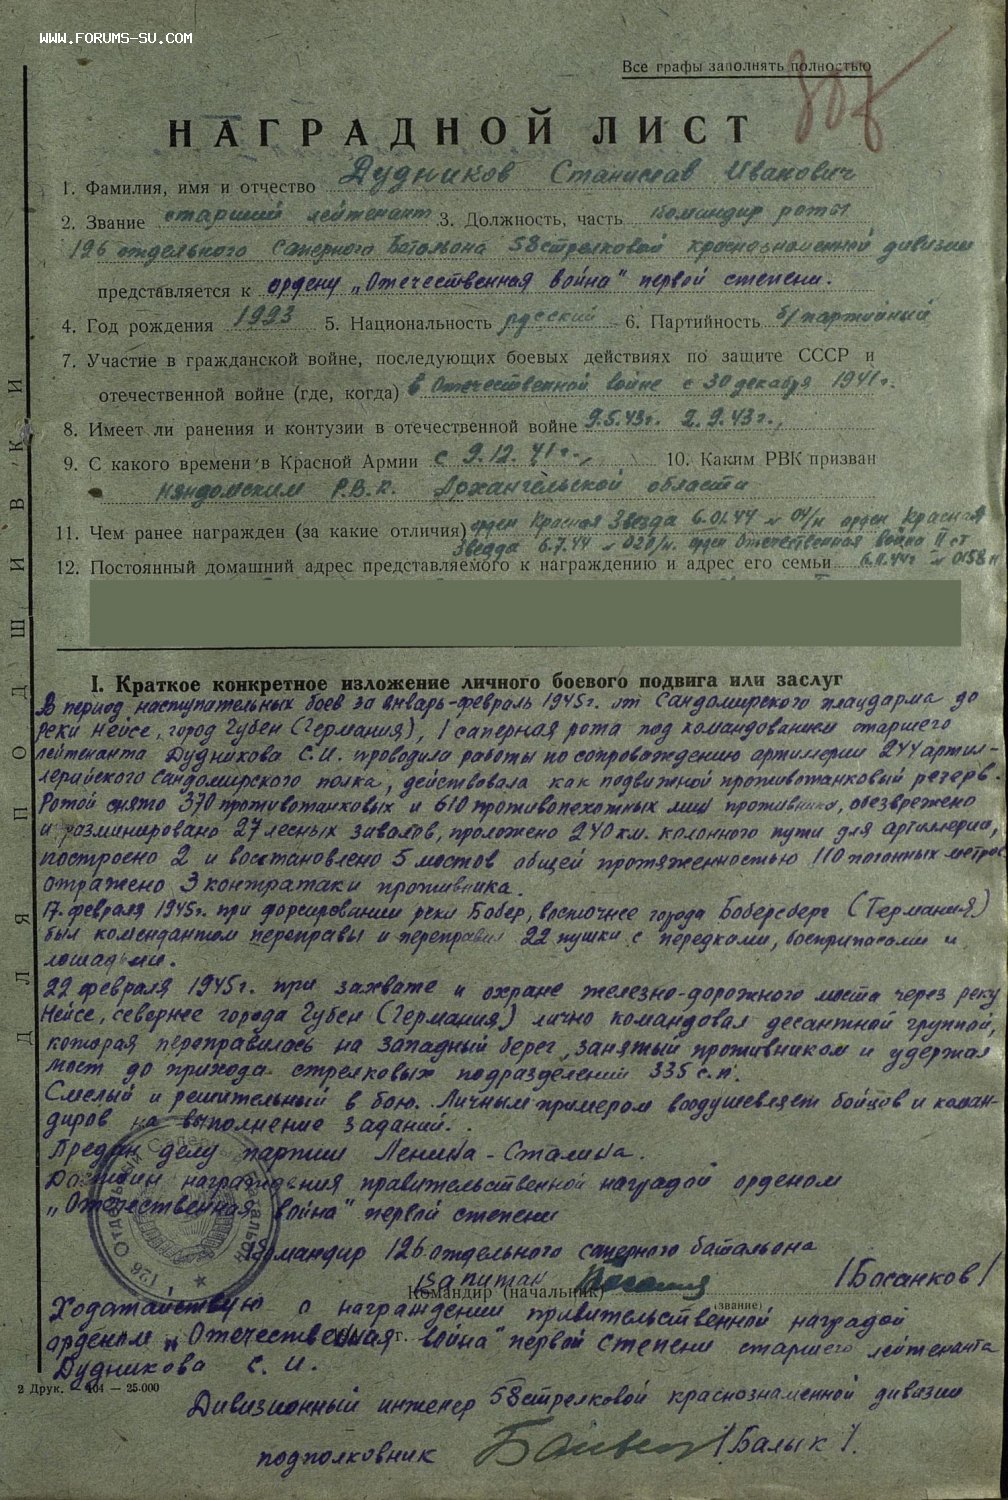 WWW.FORUMS-SU.COM
Все графы заполнять полностью
НАГРАДНОЙ ЛИСТ
1. Фамилия, имя и отчество Дудников Станислав Иванович
2. Звание старший лейтенант 3. Должность, часть Командир роты
126 отдельного Саперного Батальона 58 стрелковой краснознаменной дивизии
представляется к ордену „Отечественная война" первой степени.
4. Год рождения 1923 5. Национальность русский 6. Партийность б/партийный
7. Участие в гражданской войне, последующих боевых действиях по защите СССР и
отечественной войне (где, когда) в Отечественной войне с 30 декабря 1941 г.
8. Имеет ли ранения и контузии в отечественной войне 9.5.43г. 2.9.43г.,
9. С какого времени в Красной Армии с 9.12.41 г., 10. Каким РВК призван
Няндомским Р.В.К. Архангельской области
11. Чем ранее награжден (за какие отличия) орден Красная Звезда 6.01.44 № 04/н орден Красная
Звезда 6.7.44 № 020/н. орден Отечественная война II ст
12. Постоянный домашний адрес представляемого к награждению и адрес его семьи 6.11.44г № 0158 н
I. Краткое конкретное изложение личного боевого подвига или заслуг
В период наступательных боев за январь-февраль 1945г. от Сандомирского плацдарма до
реки Нейсе, город Губен (Германия), 1 саперная рота под командованием старшего
лейтенанта Дудникова С.И. проводила работы по сопровождению артиллерии 244 артил-
лерийского Сандомирского полка, действовала как подвижной противотанковый резерв.
Ротой снято 370 противотанковых и 610 противопехотных мин противника, обезврежено
и разминировано 27 лесных завалов, проложено 240 км. колонного пути для артиллерии,
построено 2 и восстановлено 5 мостов общей протяженностью 110 погонных метров
отражено 3 контратаки противника.
17 февраля 1945г. при форсировании реки Бобер, восточнее города Боберсберг (Германия)
был комендантом переправы и переправил 22 пушки с передками, боеприпасами и
лошадьми.
22 февраля 1945г. при захвате и охране железно-дорожного моста через реку
Нейсе, севернее города Губен (Германия) лично командовал десантной группой,
которая переправилась на западный берег, занятый противником и удержал
мост до прихода стрелковых подразделений 335 с.п.
Смелый и решительный в бою. Личным примером воодушевляет бойцов и коман-
диров на выполнение заданий.
Предан делу партии Ленина - Сталина.
Достоин награждения правительственной наградой орденом
„Отечественная война" первой степени
Командир 126 отдельного саперного батальона
капитан /Босанков/
Командир (начальник)
(звание)
Ходатайствую о награждении правительственной наградой
орденом „Отечественная война" первой степени старшего лейтенанта
г.
Дудникова С. И.
2 Друк. 404 — 25.000
Дивизионный инженер 58 стрелковой краснознаменной дивизии
подполковник /Балык/.
ДЛЯ ПОДШИВКИ
126 Отдельный Саперный Батальон